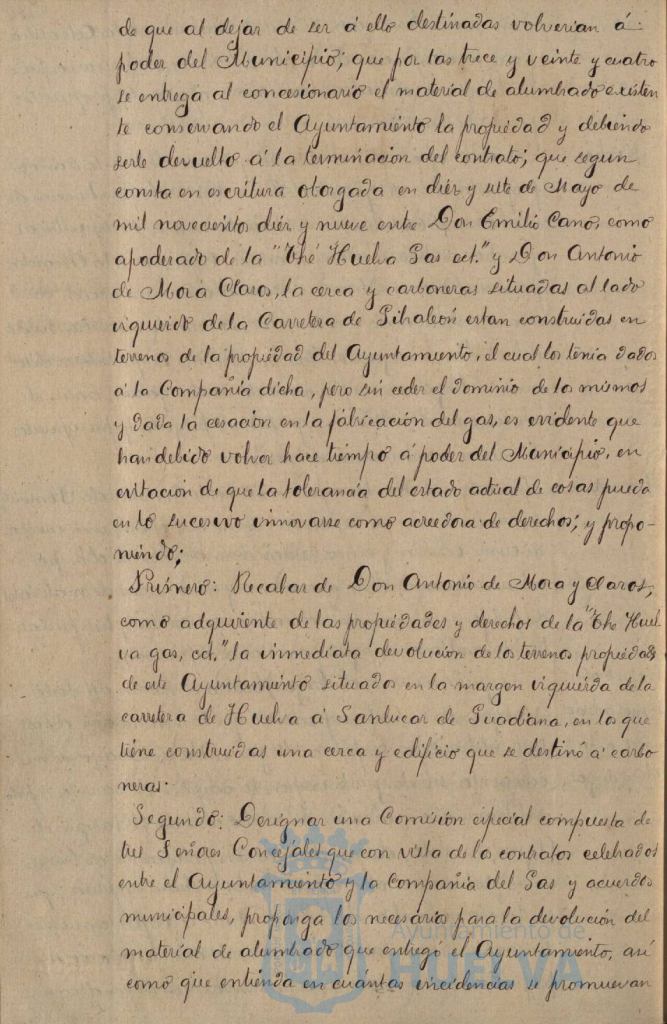 de que al dejar de ser á ello destinadas volverian á
poder del Municipio; que por las trece y veinte y cuatro
se entrega al concesionario el material de alumbrado existen
te conservando el Ayuntamiento la propiedad y debiendo
serle devuelto á la terminacion del contrato; que segun
consta en escritura otorgada en diéz y siete de Mayo de
mil novecientos diéz y nueve entre Don Emilio Cano, como
apoderado de la "The Huelva Gas cct." y Don Antonio
de Mora Claros, la cerca y carboneras situadas al lado
izquierdo de la Carretera de Gibraleón estan construidas en
terrenos de la propiedad del Ayuntamiento, el cual los tenia dados
á la Compañia dicha, pero sin ceder el dominio de los mismos
y dada la cesación en la fabricación del gas, es evidente que
han debido volver hace tiempo á poder del Municipio, en
evitacion de que la tolerancia del estado actual de cosas pueda
en lo sucesivo innovarse como acreedora de derechos; y propo-
niendo;
Primero: Recabar de Don Antonio de Mora y Claros,
como adquirente de las propiedades y derechos de la "The Huel-
va gas, cct." la inmediata devolución de los terrenos propiedad
de este Ayuntamiento situados en la margen izquierda de la
carretera de Huelva á Sanlucar de Guadiana, en los que
tiene construidas una cerca y edificio que se destinó a carbo
neras.
Segundo: Designar una Comisión especial compuesta de
tres Señores Concejales que con vista de los contratos celebrados
entre el Ayuntamiento y la Compañia del Gas y acuerdos
municipales, proponga los necesarios para la devolución del
material de alumbrado que entregó el Ayuntamiento, asi
como que entienda en cuántas incidencias se promuevan
Ayuntamiento de
HUELVA